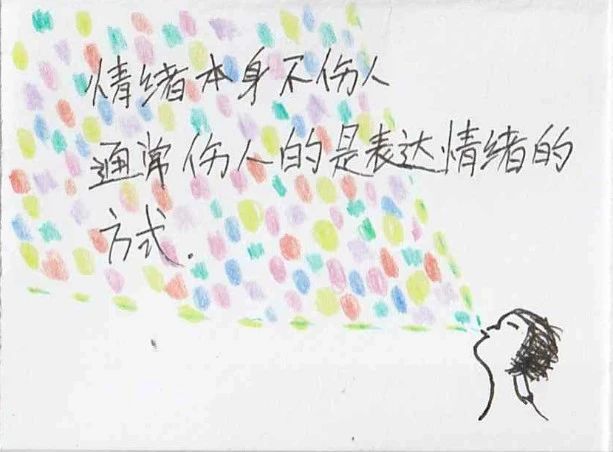 情绪本身不伤人
通常伤人的是表达情绪的
方式.